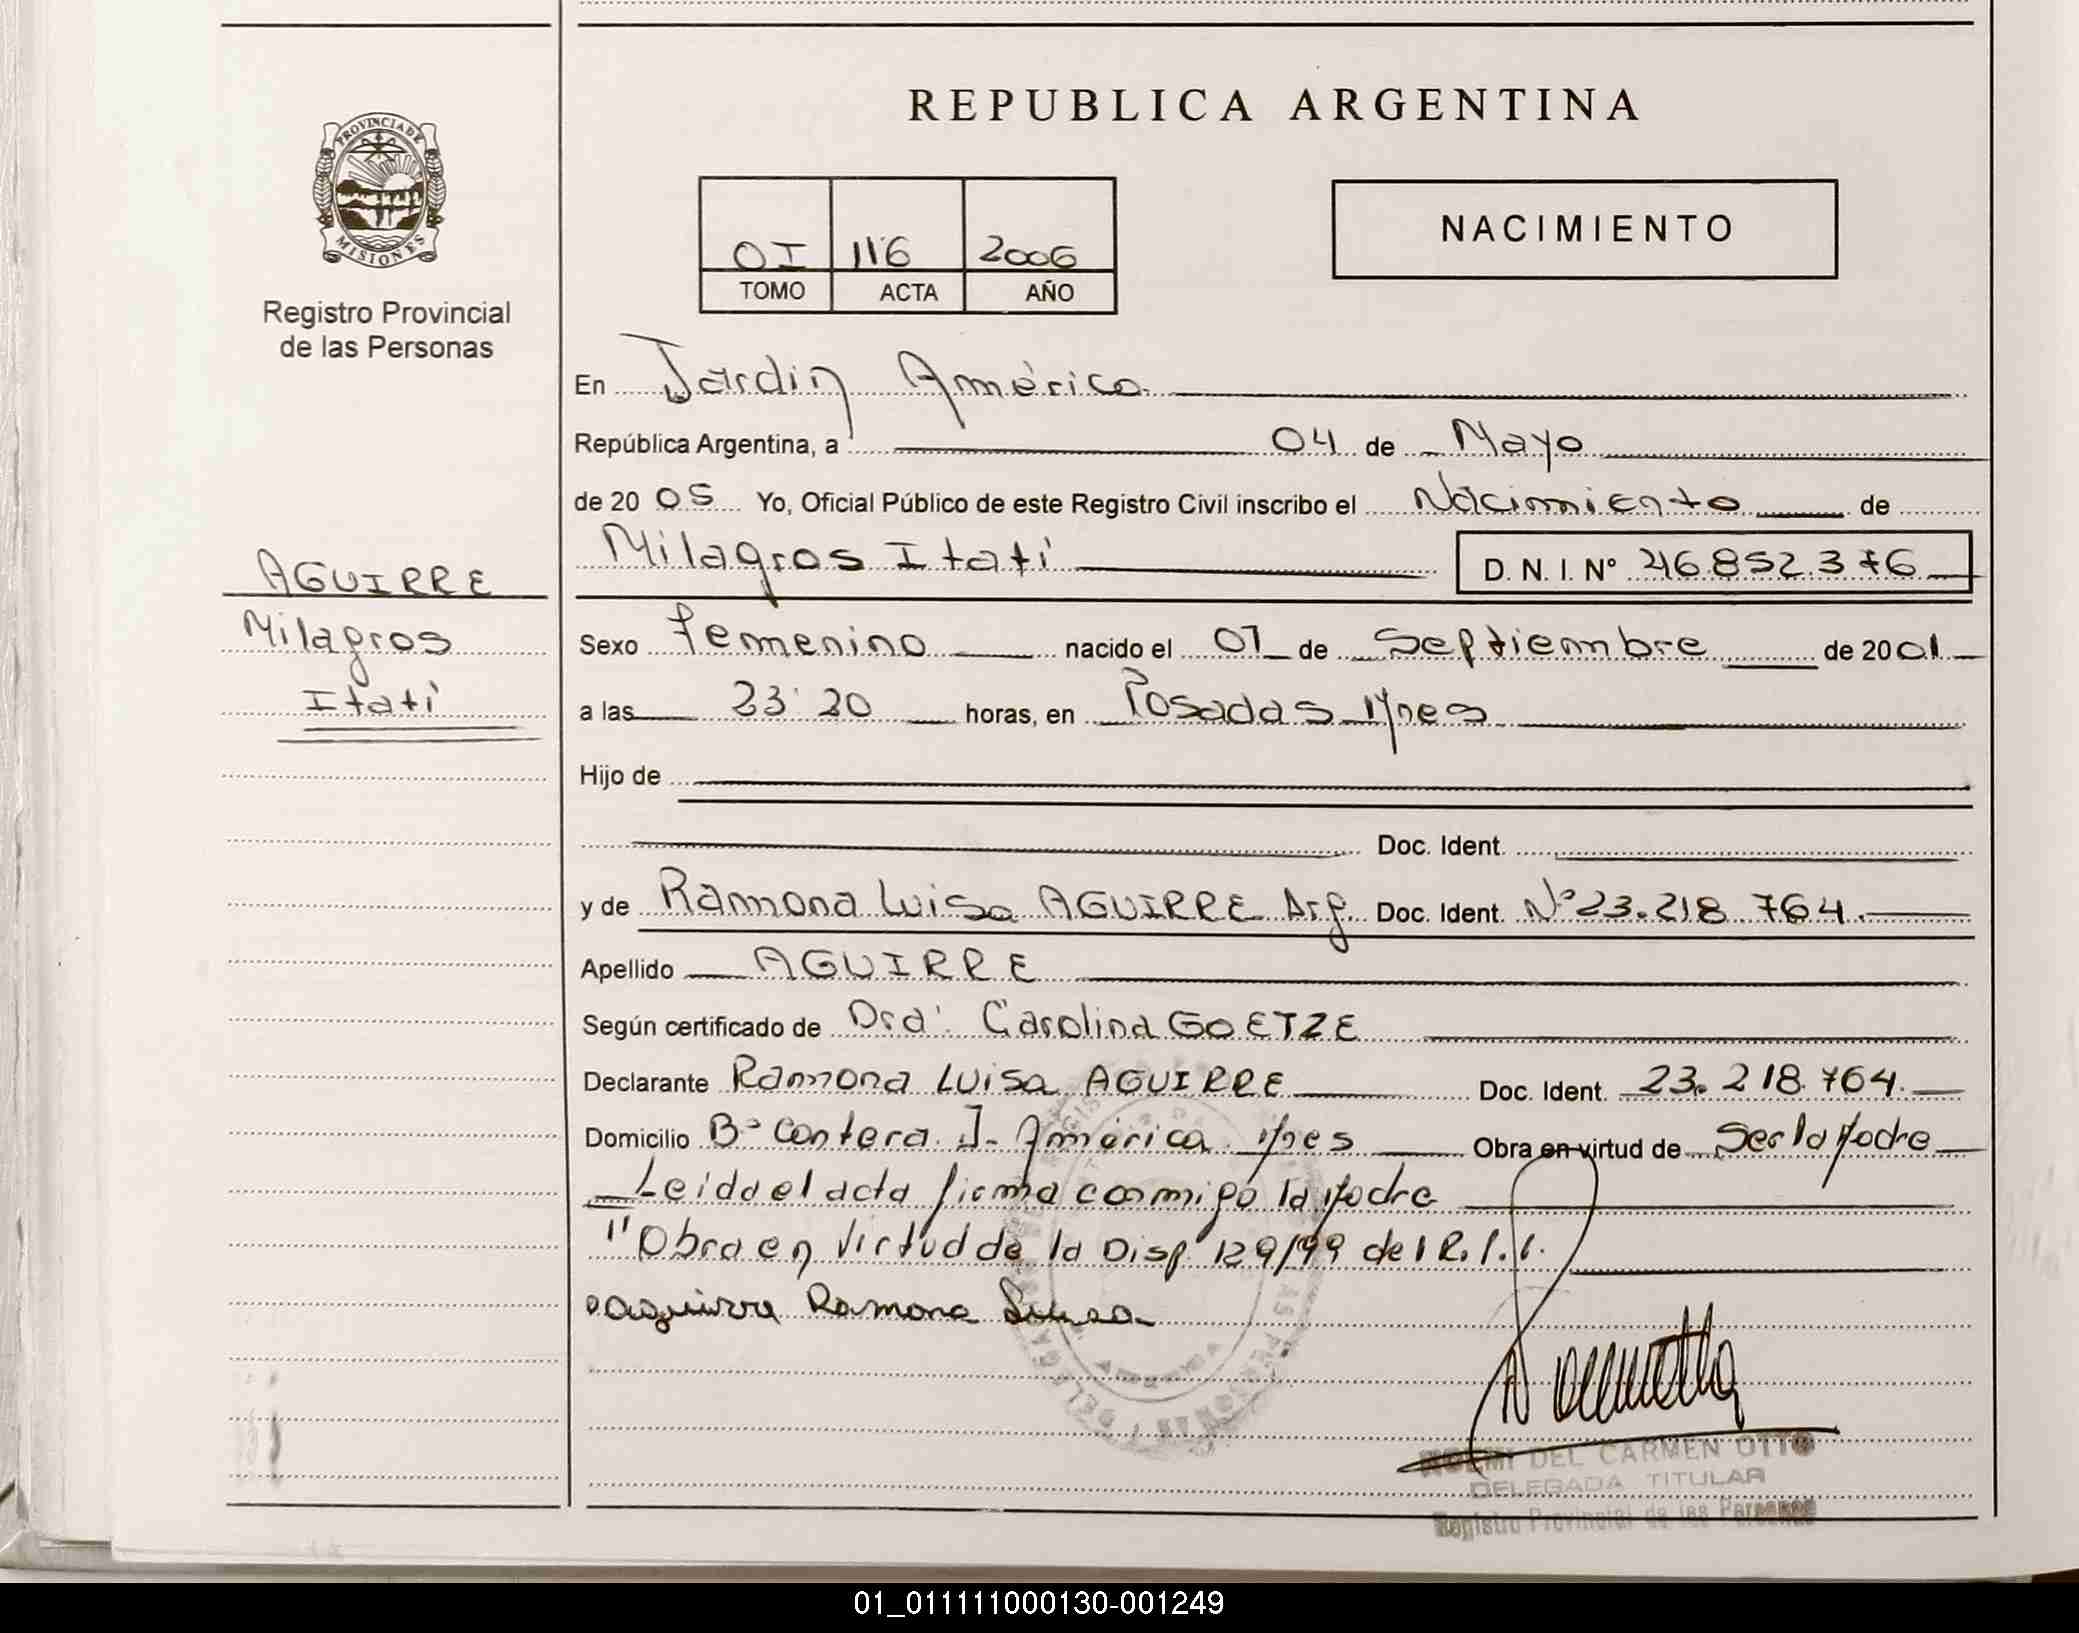 REPUBLICA ARGENTINA
PROVINCIA DE
MISIONES
Registro Provincial
de las Personas
OI 116 2006
TOMO ACTA AÑO
NACIMIENTO
En Jardin América
República Argentina, a 04 de Mayo
de 20 05 Yo, Oficial Público de este Registro Civil inscribo el Nacimiento de
Milagros Itatí D. N. I. Nº 46.852.376
AGUIRRE
Milagros
Itatí
Sexo Femenino nacido el 07 de Septiembre de 2001
a las 23:20 horas, en Posadas Mnes
Hijo de
Doc. Ident.
y de Ramona Luisa AGUIRRE Arg. Doc. Ident. Nº 23.218.764.
Apellido AGUIRRE
Según certificado de Dra. Carolina GOETZE
Declarante Ramona Luisa AGUIRRE Doc. Ident. 23.218.764.
Domicilio Bº Cantera J. América Mnes Obra en virtud de Ser la Madre
Leida el acta firma conmigo la Madre
"Obra en virtud de la Disp 129/99 del R.P.
aguirre Ramona Luisa
NOEMI DEL CARMEN OTTO
DELEGADA TITULAR
Registro Provincial de las Personas
01_011111000130-001249